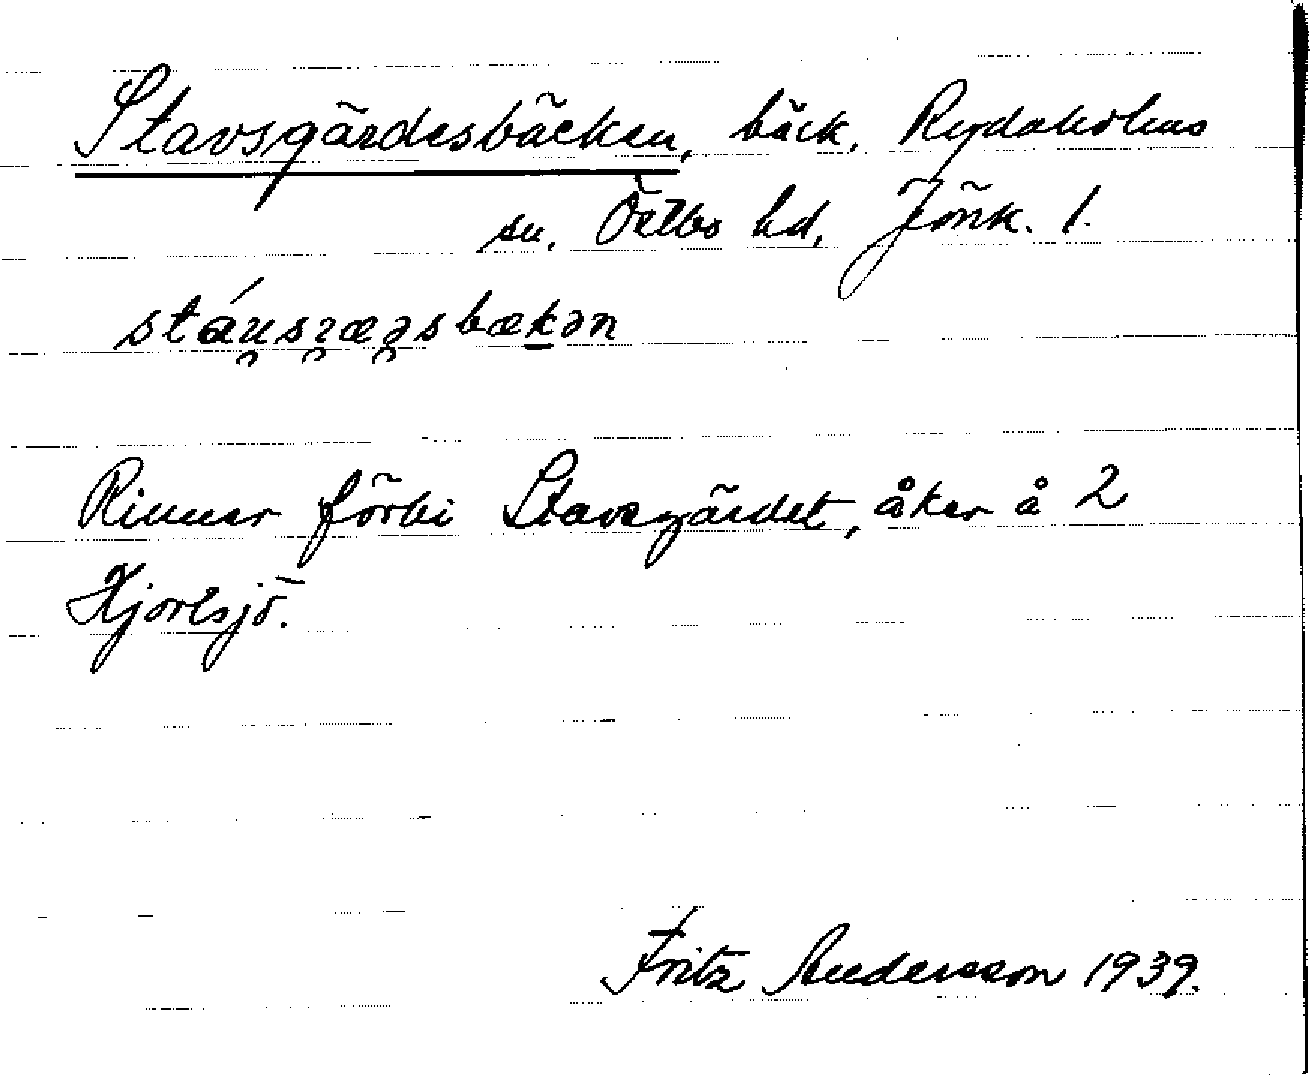 Stavsgärdesbäcken, bäck, Rydaholms
sn, Östbo hd, Jönk. l.
stáu̯sɿ̯æə̯sbækən
Rinner förbi Stavsgärdet, åker å 2
Hjortsjö.
Fritz Andersson 1939.